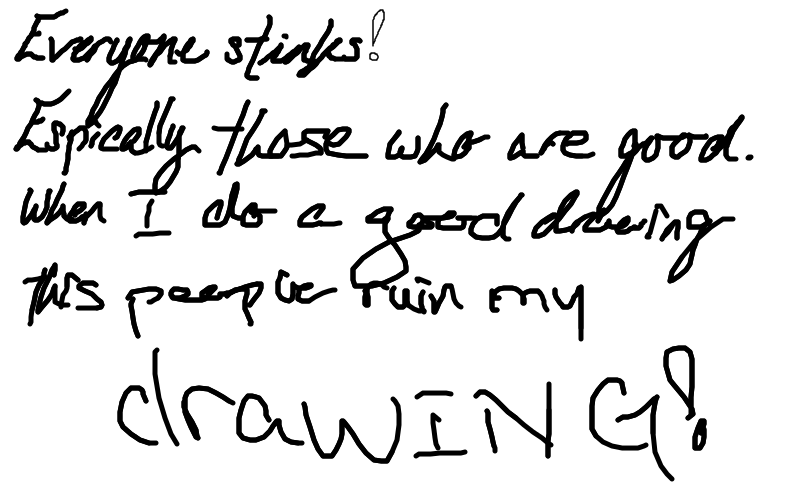 Everyone stinks!
Espically those who are good.
When I do a good drawing
this peeple ruin my
drawING!